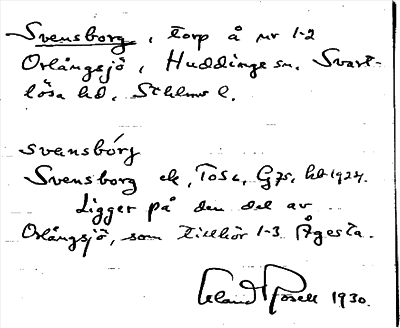 Svensborg, torp å nr 1-2
Orlångsjö, Huddinge sn. Svart-
lösa hd. Sthlms l.
svensbórg
Svensborg ek, Tosc, G75, hd 1924.
Ligger på den del av
Orlångsjö, som tillhör 1-3 Ågesta.
Erland Rosell 1930.